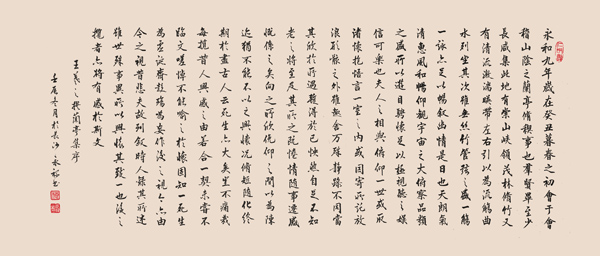 永和九年歲在癸丑暮春之初會于會
稽山陰之蘭亭脩稧事也羣賢畢至少
長咸集此地有崇山峻領茂林脩竹又
有清流激湍暎帶左右引以為流觴曲
水列坐其次雖無絲竹管弦之盛一觴
一詠亦足以暢叙幽情是日也天朗氣
清惠風和暢仰觀宇宙之大俯察品類
之盛所以遊目騁懷足以極視聽之娛
信可樂也夫人之相與俯仰一世或取
諸懷抱悟言一室之內或因寄所託放
浪形骸之外雖趣舍萬殊靜躁不同當
其欣於所遇暫得於己怏然自足不知
老之將至及其所之既惓情隨事遷感
慨係之矣向之所欣俛仰之間以為陳
迹猶不能不以之興懷況脩短隨化終
期於盡古人云死生亦大矣豈不痛哉
每攬昔人興感之由若合一契未嘗不
臨文嗟悼不能喻之於懷固知一死生
為虛誕齊彭殤為妄作後之視今亦由
今之視昔悲夫故列叙時人錄其所述
雖世殊事異所以興懷其致一也後之
攬者亦將有感於斯文
王羲之撰蘭亭集序
壬辰冬月於長沙永裕書